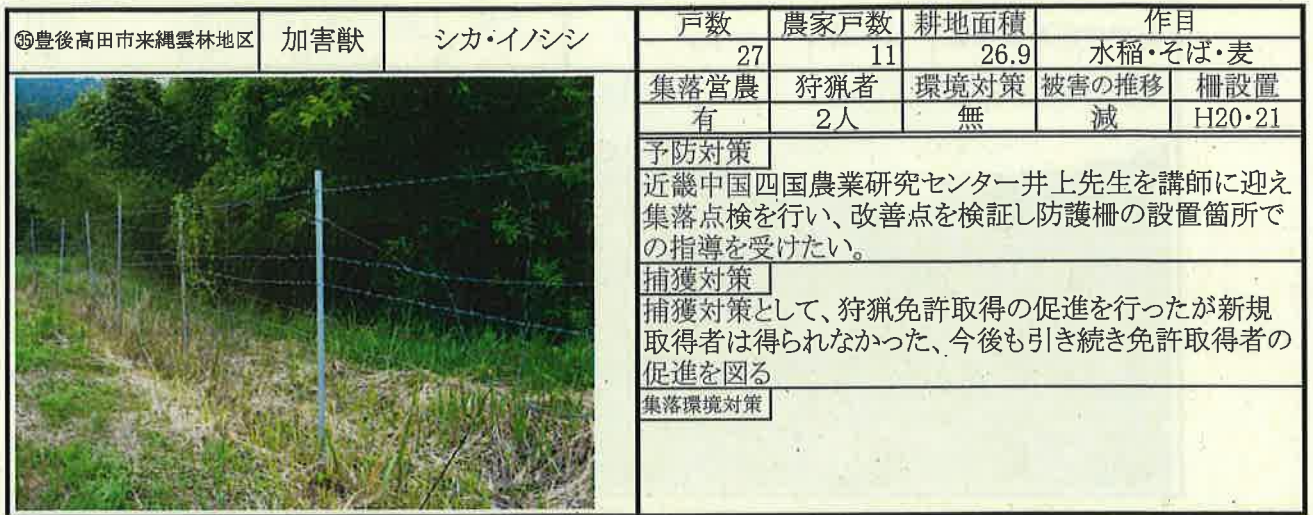 ㉟豊後高田市来縄雲林地区 加害獣 シカ・イノシシ
戸数 農家戸数 耕地面積 作目
27 11 26.9 水稲・そば・麦
集落営農 狩猟者 環境対策 被害の推移 柵設置
有 2人 無 減 H20・21
予防対策
近畿中国四国農業研究センター井上先生を講師に迎え
集落点検を行い、改善点を検証し防護柵の設置箇所で
の指導を受けたい。
捕獲対策
捕獲対策として、狩猟免許取得の促進を行ったが新規
取得者は得られなかった、今後も引き続き免許取得者の
促進を図る
集落環境対策